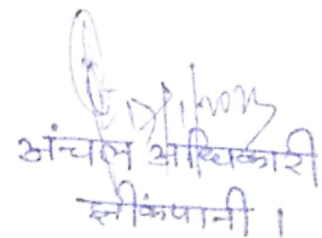 अंचल अधिकारी
झींकपानी ।